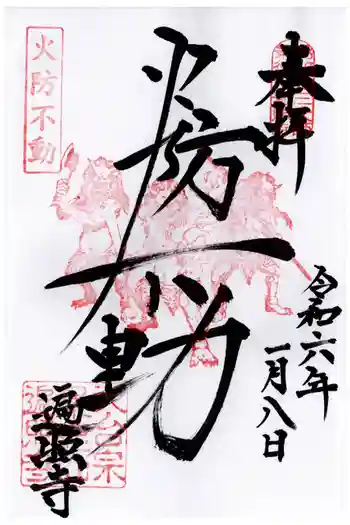 奉拝
令和六年
一月八日
火防不動
遍照寺
火防不動